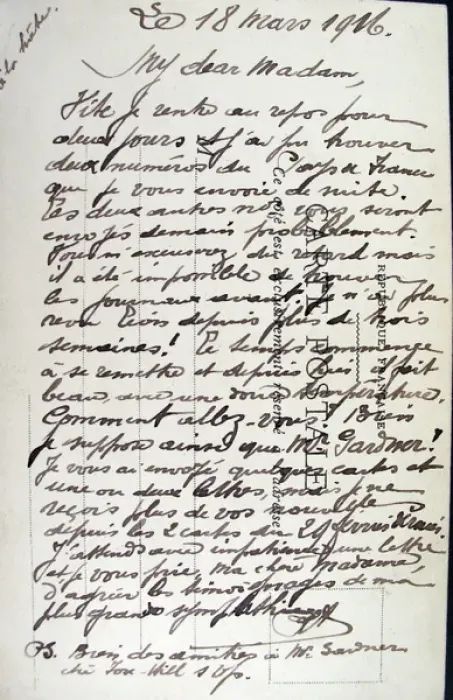 à la hâte.
Le 18 mars 1916.
My dear Madam,
Vite je rentre au repos pour
deux jours et j'ai pu trouver
deux numéros du Pays de France
que je vous envoie de suite.
Les deux autres nos vous seront
envoyés demain probablement.
Vous m'excuserez du retard mais
il a été impossible de trouver
les journaux avant. Je n'ai plus
revu Léon depuis plus de trois
semaines! Le temps commence
à se remettre et depuis hier il fait
beau, avec une douce température.
Comment allez-vous? Bien
je suppose ainsi que Mr Gardner!
Je vous ai envoyé quelques cartes et
une ou deux lettres, mais je ne
reçois plus de vos nouvelles
depuis les 2 cartes du 29 février dernier.
J'attends avec impatience une lettre
et je vous prie, ma chère Madame,
d'agréer les témoignages de ma
plus grande sympathie.
PS. Bien des amitiés à Mr Gardner
Fox-Hill
RÉPUBLIQUE FRANÇAISE
CARTE POSTALE
Ce côté est exclusivement réservé à l'adresse